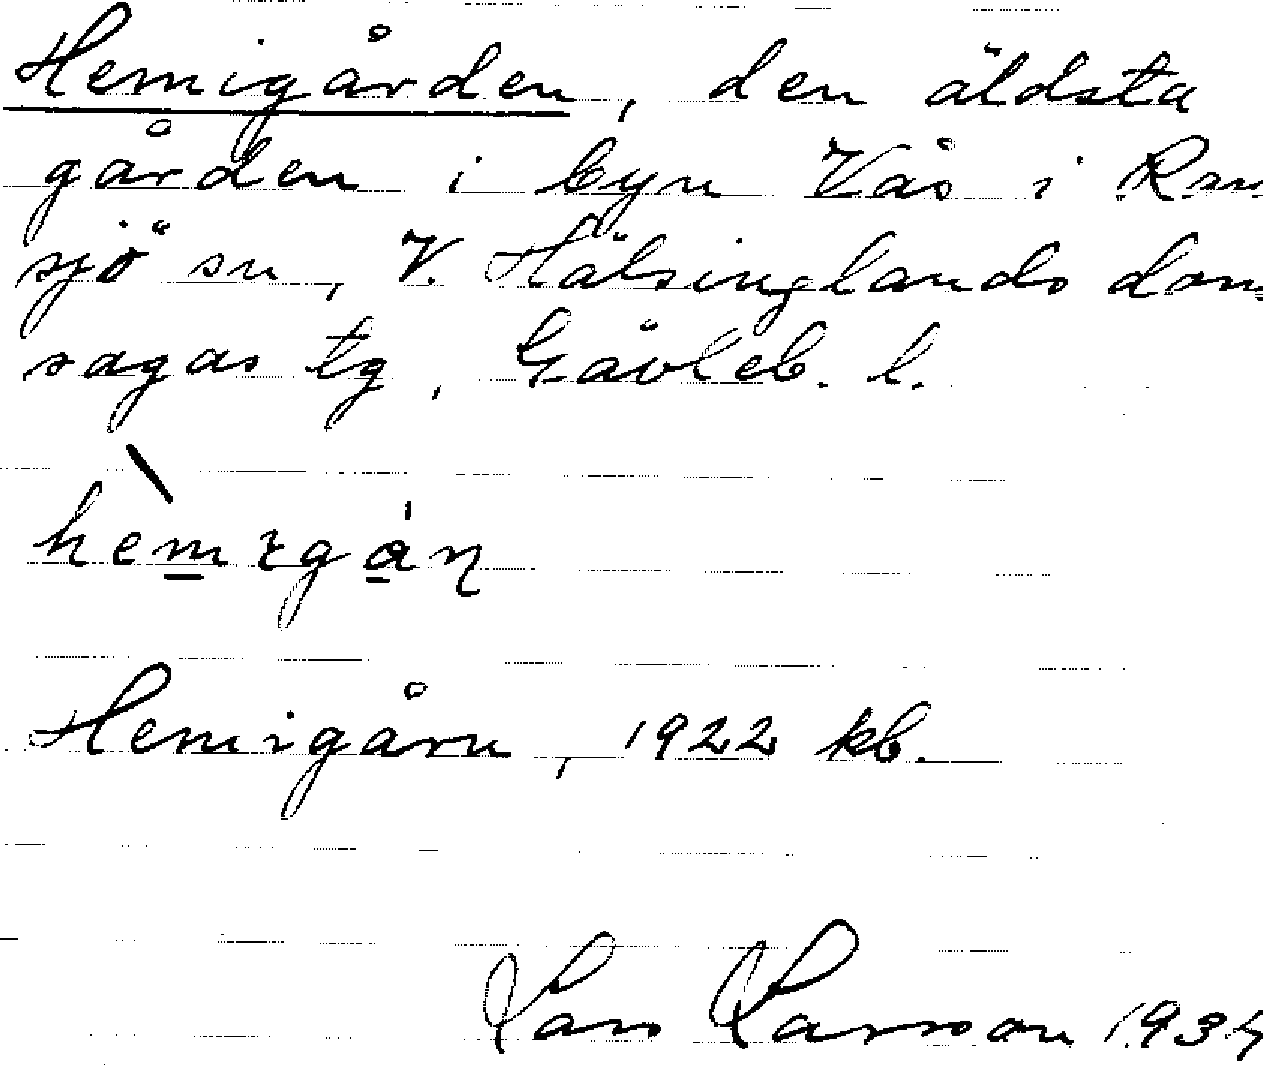 Hemigården, den äldsta
gården i byn Vås i Ram
sjö sn, V. Hälsinglands dom
sagas tg, Gävleb. l.
Hemigårn, 1922 kb.
Lars Larsson 1934